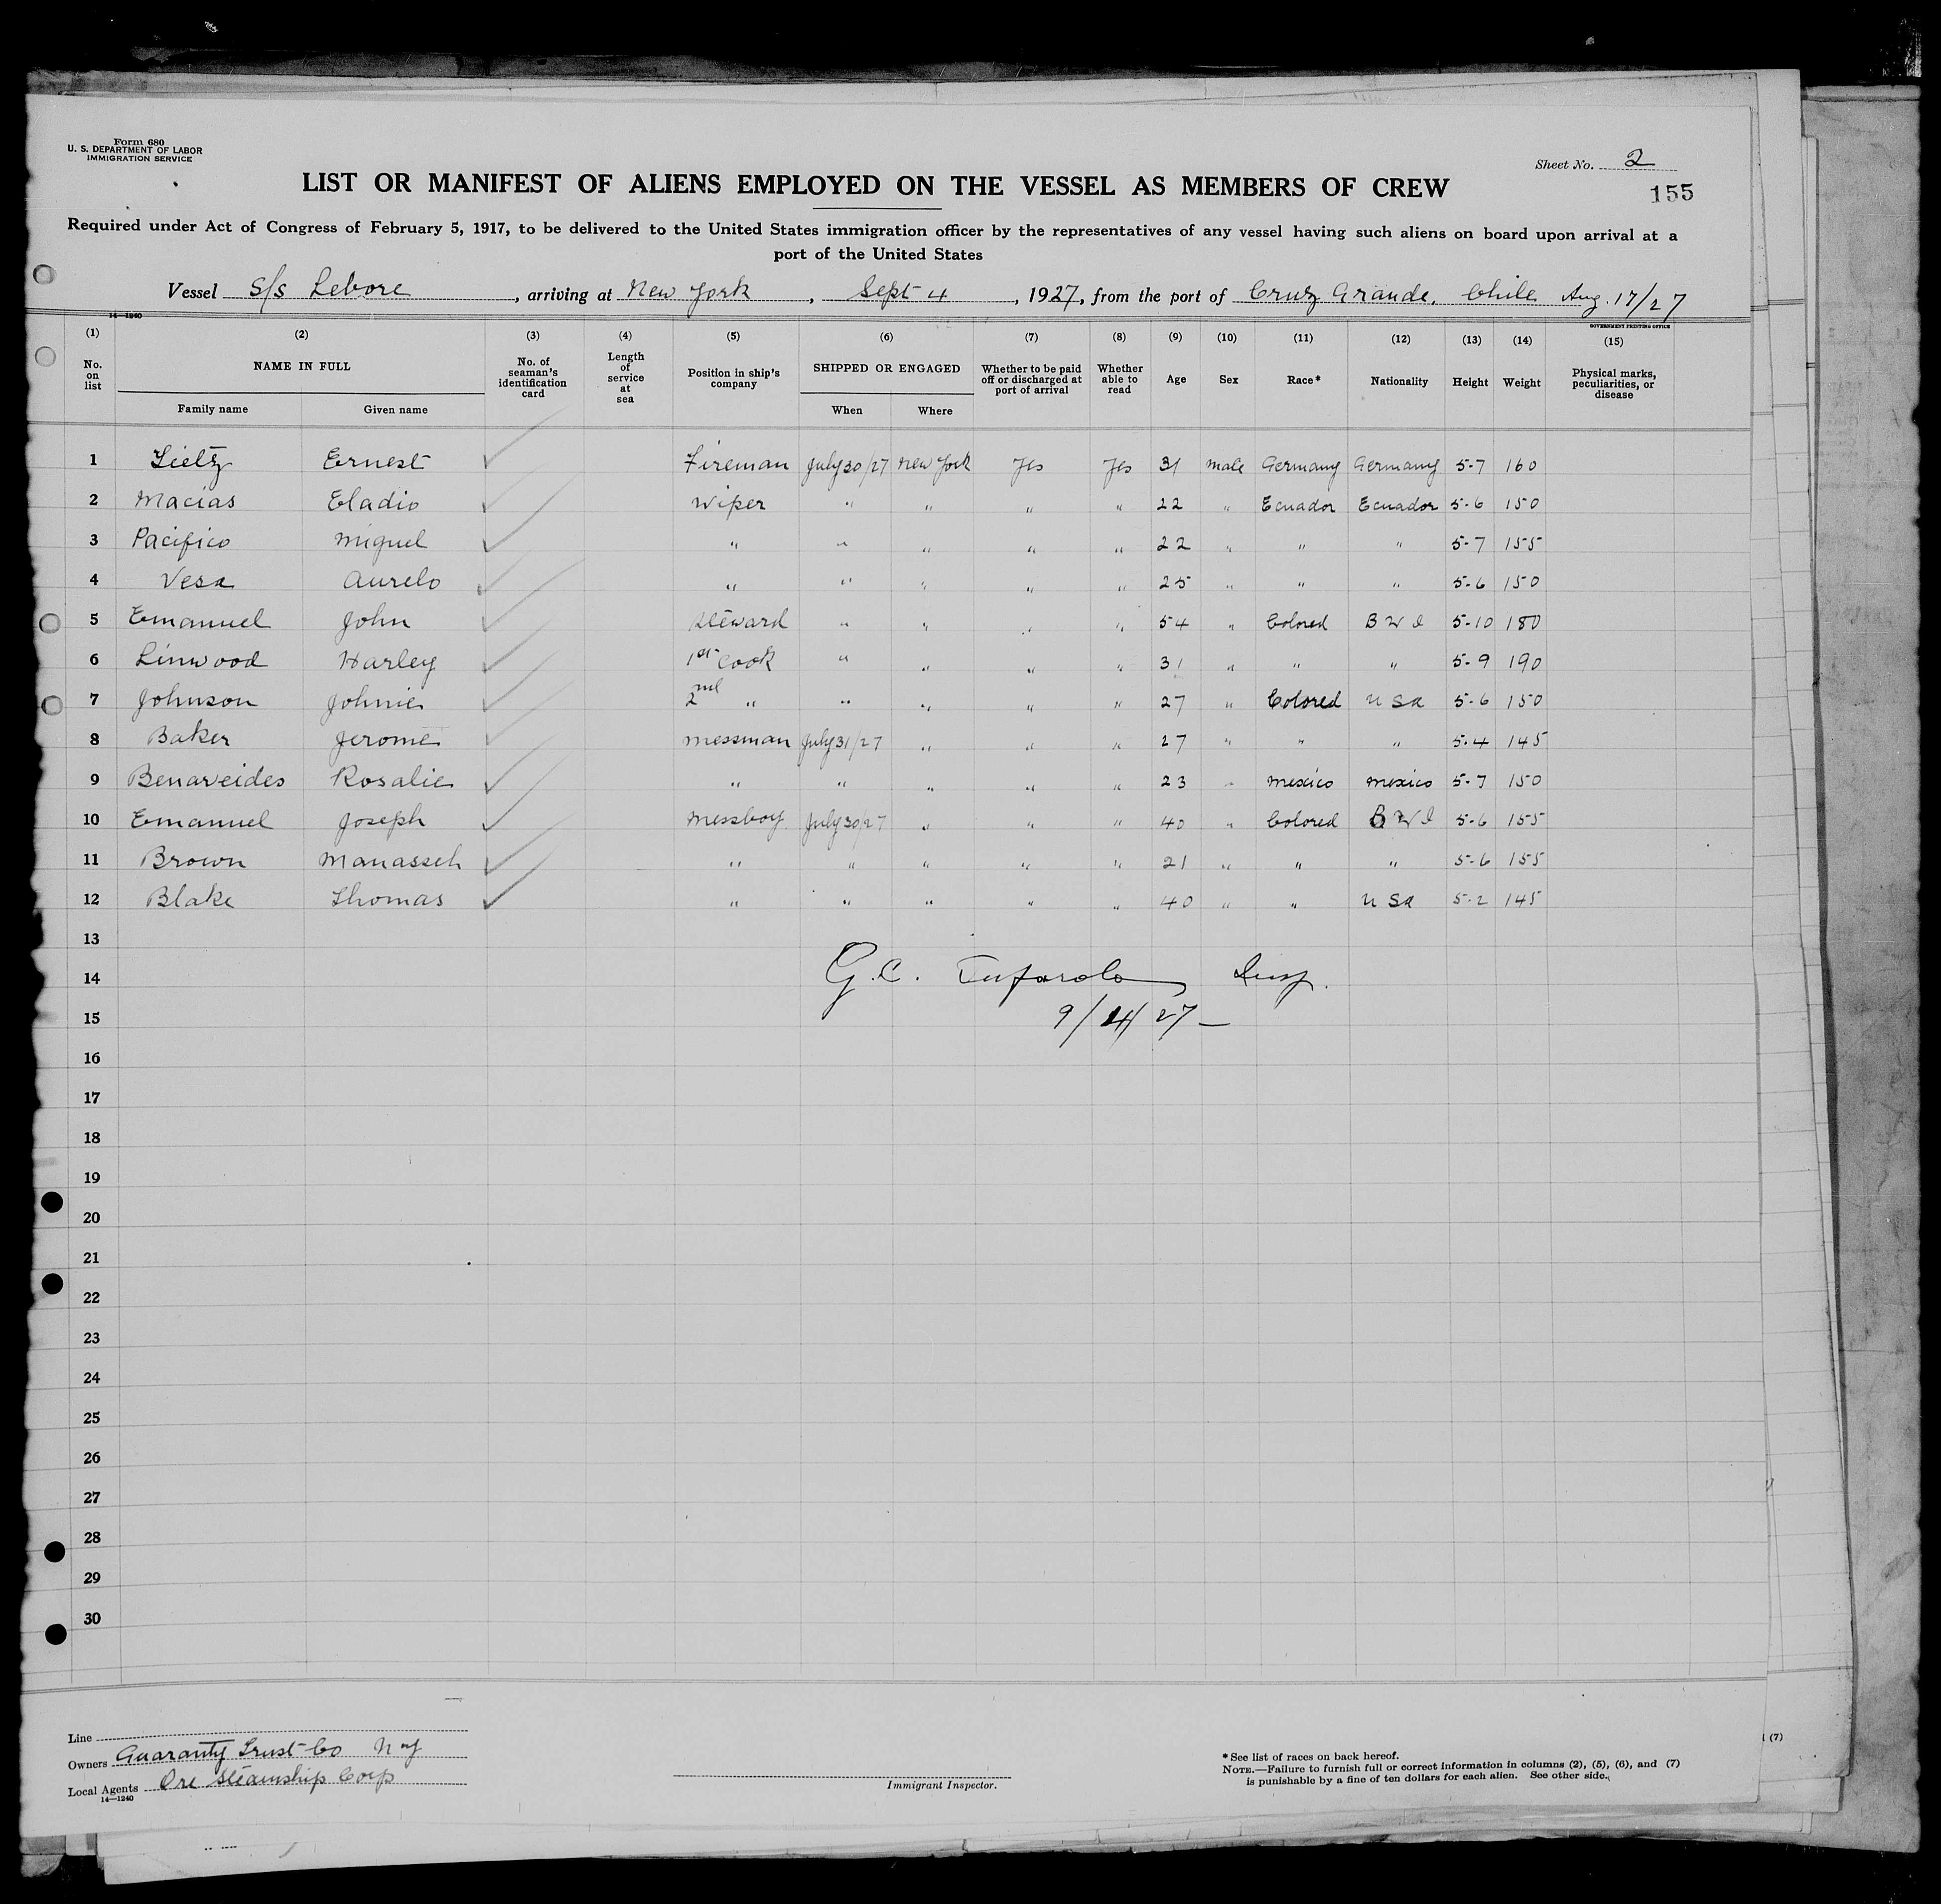 Form 680
U. S. DEPARTMENT OF LABOR
IMMIGRATION SERVICE
Sheet No. 2
LIST OR MANIFEST OF ALIENS EMPLOYED ON THE VESSEL AS MEMBERS OF CREW
155
Required under Act of Congress of February 5, 1917, to be delivered to the United States immigration officer by the representatives of any vessel having such aliens on board upon arrival at a
port of the United States
Vessel S/s Lebore, arriving at New York, Sept 4, 1927, from the port of Cruz Grande. Chile Aug. 17/27
14—1240
GOVERNMENT PRINTING OFFICE
(1) (2) (3) (4) (5) (6) (7) (8) (9) (10) (11) (12) (13) (14) (15)
No. on list NAME IN FULL Family name Given name No. of seaman's identification card Length of service at sea Position in ship's company SHIPPED OR ENGAGED When Where Whether to be paid off or discharged at port of arrival Whether able to read Age Sex Race* Nationality Height Weight Physical marks, peculiarities, or disease
1 Lietz Ernest Fireman July 30/27 New York Yes Yes 31 male Germany Germany 5-7 160
2 Macias Eladio Wiper " " " " 22 " Ecuador Ecuador 5-6 150
3 Pacifico Miguel " " " " " 22 " " " 5-7 155
4 Vesa Aurelo " " " " " 25 " " " 5-6 150
5 Emanuel John Steward " " " " 54 " Colored B W I 5-10 180
6 Linwood Harley 1st Cook " " " " 31 " " " 5-9 190
7 Johnson Johnie 2nd " " " " " 27 " Colored U Sa 5-6 150
8 Baker Jerome messman July 31/27 " " " 27 " " " 5-4 145
9 Benaveides Rosalie " " " " " 23 " Mexico Mexico 5-7 150
10 Emanuel Joseph Messboy July 30/27 " " " 40 " Colored B W I 5-6 155
11 Brown Manasseh " " " " " 21 " " " 5-6 155
12 Blake Thomas " " " " " 40 " " U Sa 5-2 145
13
14 G. C. Insp.
15 9/4/27
16
17
18
19
20
21
22
23
24
25
26
27
28
29
30
Line
Owners Guaranty Trust Co N Y
Local Agents Ore Steamship Corp
14—1240
Immigrant Inspector.
* See list of races on back hereof.
NOTE.—Failure to furnish full or correct information in columns (2), (5), (6), and (7)
is punishable by a fine of ten dollars for each alien. See other side.
(7)